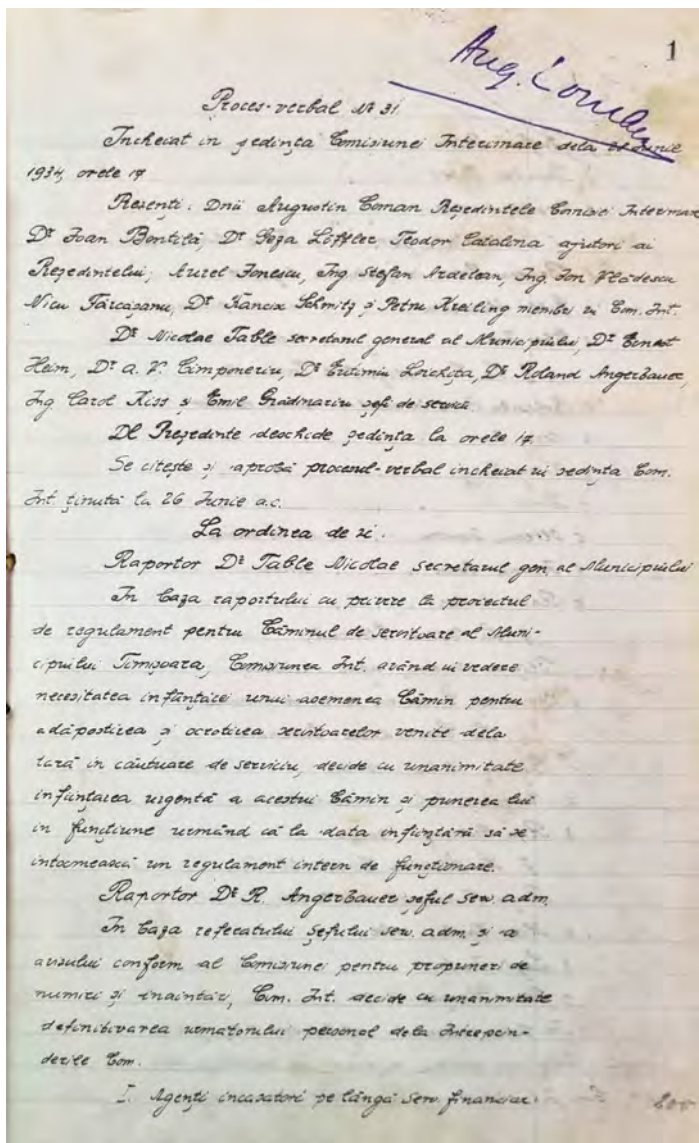 1
Aug. Coman
Proces-verbal Nº 31.
Incheiat in ședința Comisiunei Interimare dela Iunie
1934, orele 17
Prezenți: Dnii Augustin Coman Președintele Comisiei Interimare
Dr Ioan Bontilă, Dr Geza Löffler Teodor Catalina ajutori ai
Președintelui; Aurel Ionescu, Ing. Ștefan Ardelean, Ing. Ion Vlădescu
Nicu Tărcășanu, Dr Francisc Schmitz și Petru Kreiling membri in Com. Int.
Dr Nicolae Table secretarul general al Municipiului, Dr Ernest
Heim, Dr A. V. Cimponeriu, Dr Eutimiu Loichița, Dr Roland Angerbauer,
Ing. Carol Kiss și Emil Grădinariu șefi de servicii.
Dl Președinte deschide ședința la orele 17
Se citește și aprobă procesul-verbal incheiat in ședința Com.
Int. ținută la 26 Iunie a.c.
La ordinea de zi.
Raportor Dr Table Nicolae secretarul gen. al Municipiului
In baza raportului cu privire la proiectul
de regulament pentru Căminul de servitoare al Muni-
cipiului Timișoara, Comisiunea Int. având in vedere
necesitatea infințărei unui asemenea Cămin pentru
adăpostirea și ocrotirea servitoarelor venite dela
țară in căutare de serviciu, decide cu unanimitate
inființarea urgentă a acestui Cămin și punerea lui
in funcțiune urmând că la data inființării să se
intocmească un regulament intern de funcționare.
Raportor Dr R. Angerbauer șeful serv. adm.
In baza referatului șefului serv. adm. și a
avizului conform al Comisiunei pentru propuneri de
numiri și inaintări, Com. Int. decide cu unanimitate
definitivarea urmatorului personal dela Intreprin-
derile Com.
I. Agenți incasatori pe lângă serv. financiar.